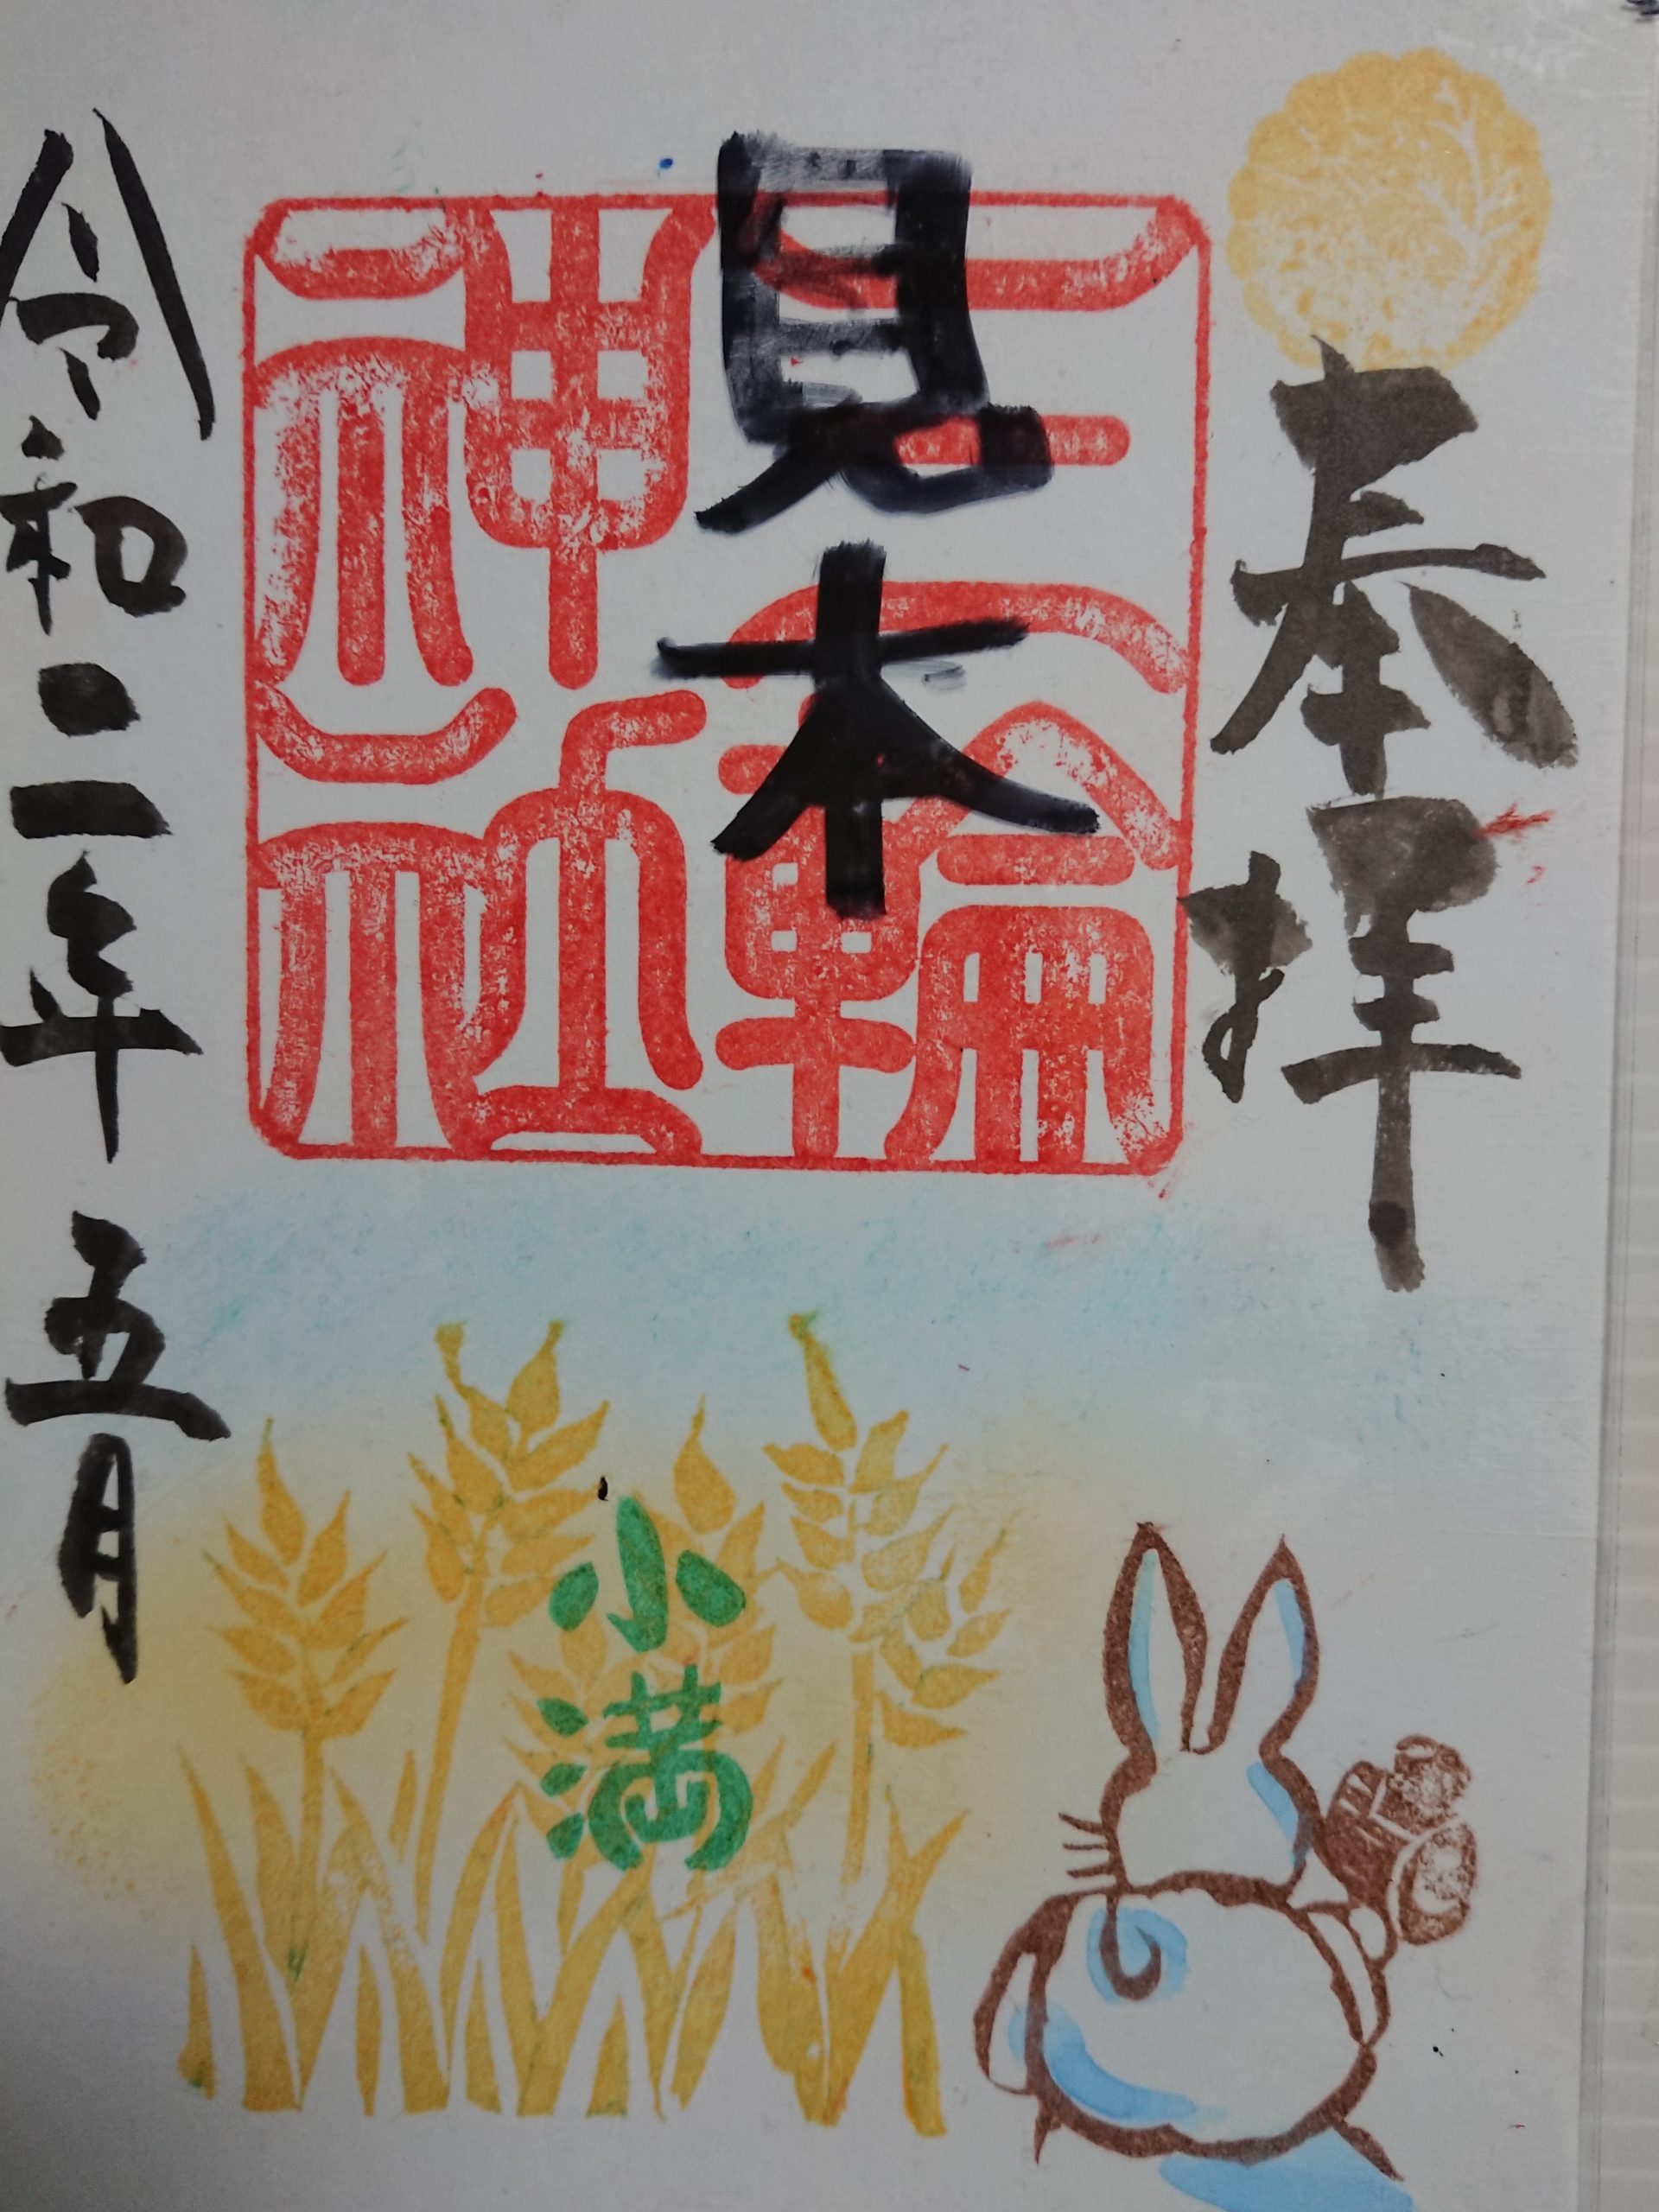 奉拝
三輪
神社
見本
小満
令和二年五月